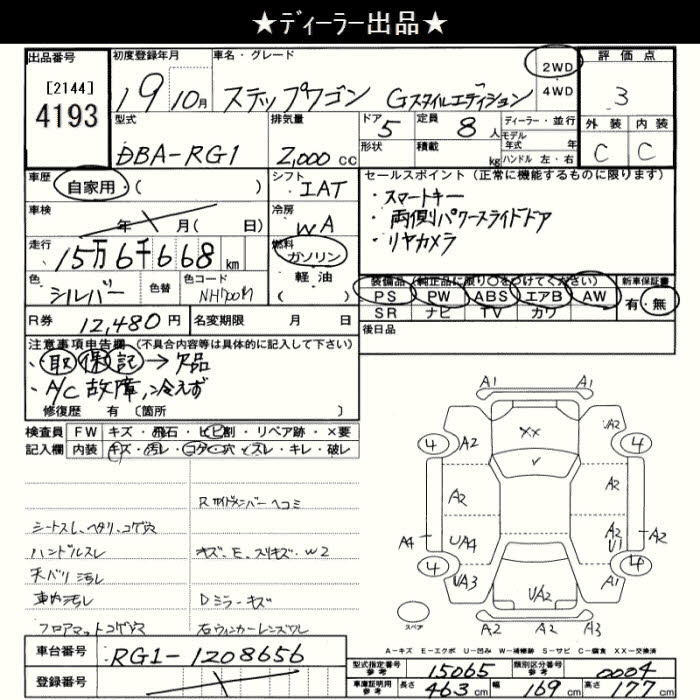 ★ディーラー出品★
出品番号 初度登録年月 車名・グレード 2WD 4WD 評価点
[2144]
4193
19 10月 ステップワゴン Gスタイルエディション 3
型式 排気量 ドア 定員 ディーラー・並行 外装 内装
DBA-RG1 2,000cc 5 8人 モデル年式 年 C C
形状 積載 kg ハンドル 左・右
車歴 自家用・( ) シフト IAT
セールスポイント(正常に機能するものに限ります)
・スマートキー
・両側パワースライドドア
・リヤカメラ
車検 年 月( 日) 冷房 WA
走行 15万6千668km 燃料 ガソリン・軽油( )
色 シルバー 色替 色コード NH700M
装備品(純正品に限り○をつけてください) 新車保証書
PS PW ABS エアB AW 有・無
SR ナビ TV カワ
R券 12,480円 名変期限 月 日
後日品
注意事項申告欄(不具合内容等は具体的に記入して下さい)
・取 保 記→欠品
・A/C故障,冷えず
修復歴 有(箇所 )
検査員記入欄 FW キズ・飛石・ヒビ割・リペア跡・×要
内装 キズ・汚レ・コゲ・穴・スレ・キレ・破レ
Rサイドメンバーヘコミ
シートスレ、ヘタリ、コゲ穴
ハンドルスレ キズ、E、スリキズ、W2
天バリ汚レ
車内汚レ Dミラーキズ
フロアマットコゲ穴 右ウィンカーレンズワレ
A1 A1
4 A2 XX UA2 4
A2 A2
A4 UA4 A2 U1 A2
4 UA3 UA2 A1 4
A2 A2 A3
スペア
A-キズ E-エクボ U-凹み W-補修跡 S-サビ C-腐食 XX-交換済
車台番号 RG1-1208656
登録番号
型式指定番号 参考 15065 類別区分番号 参考 0004
車庫証明用 参考 長さ 463cm 幅 169cm 高さ 177cm